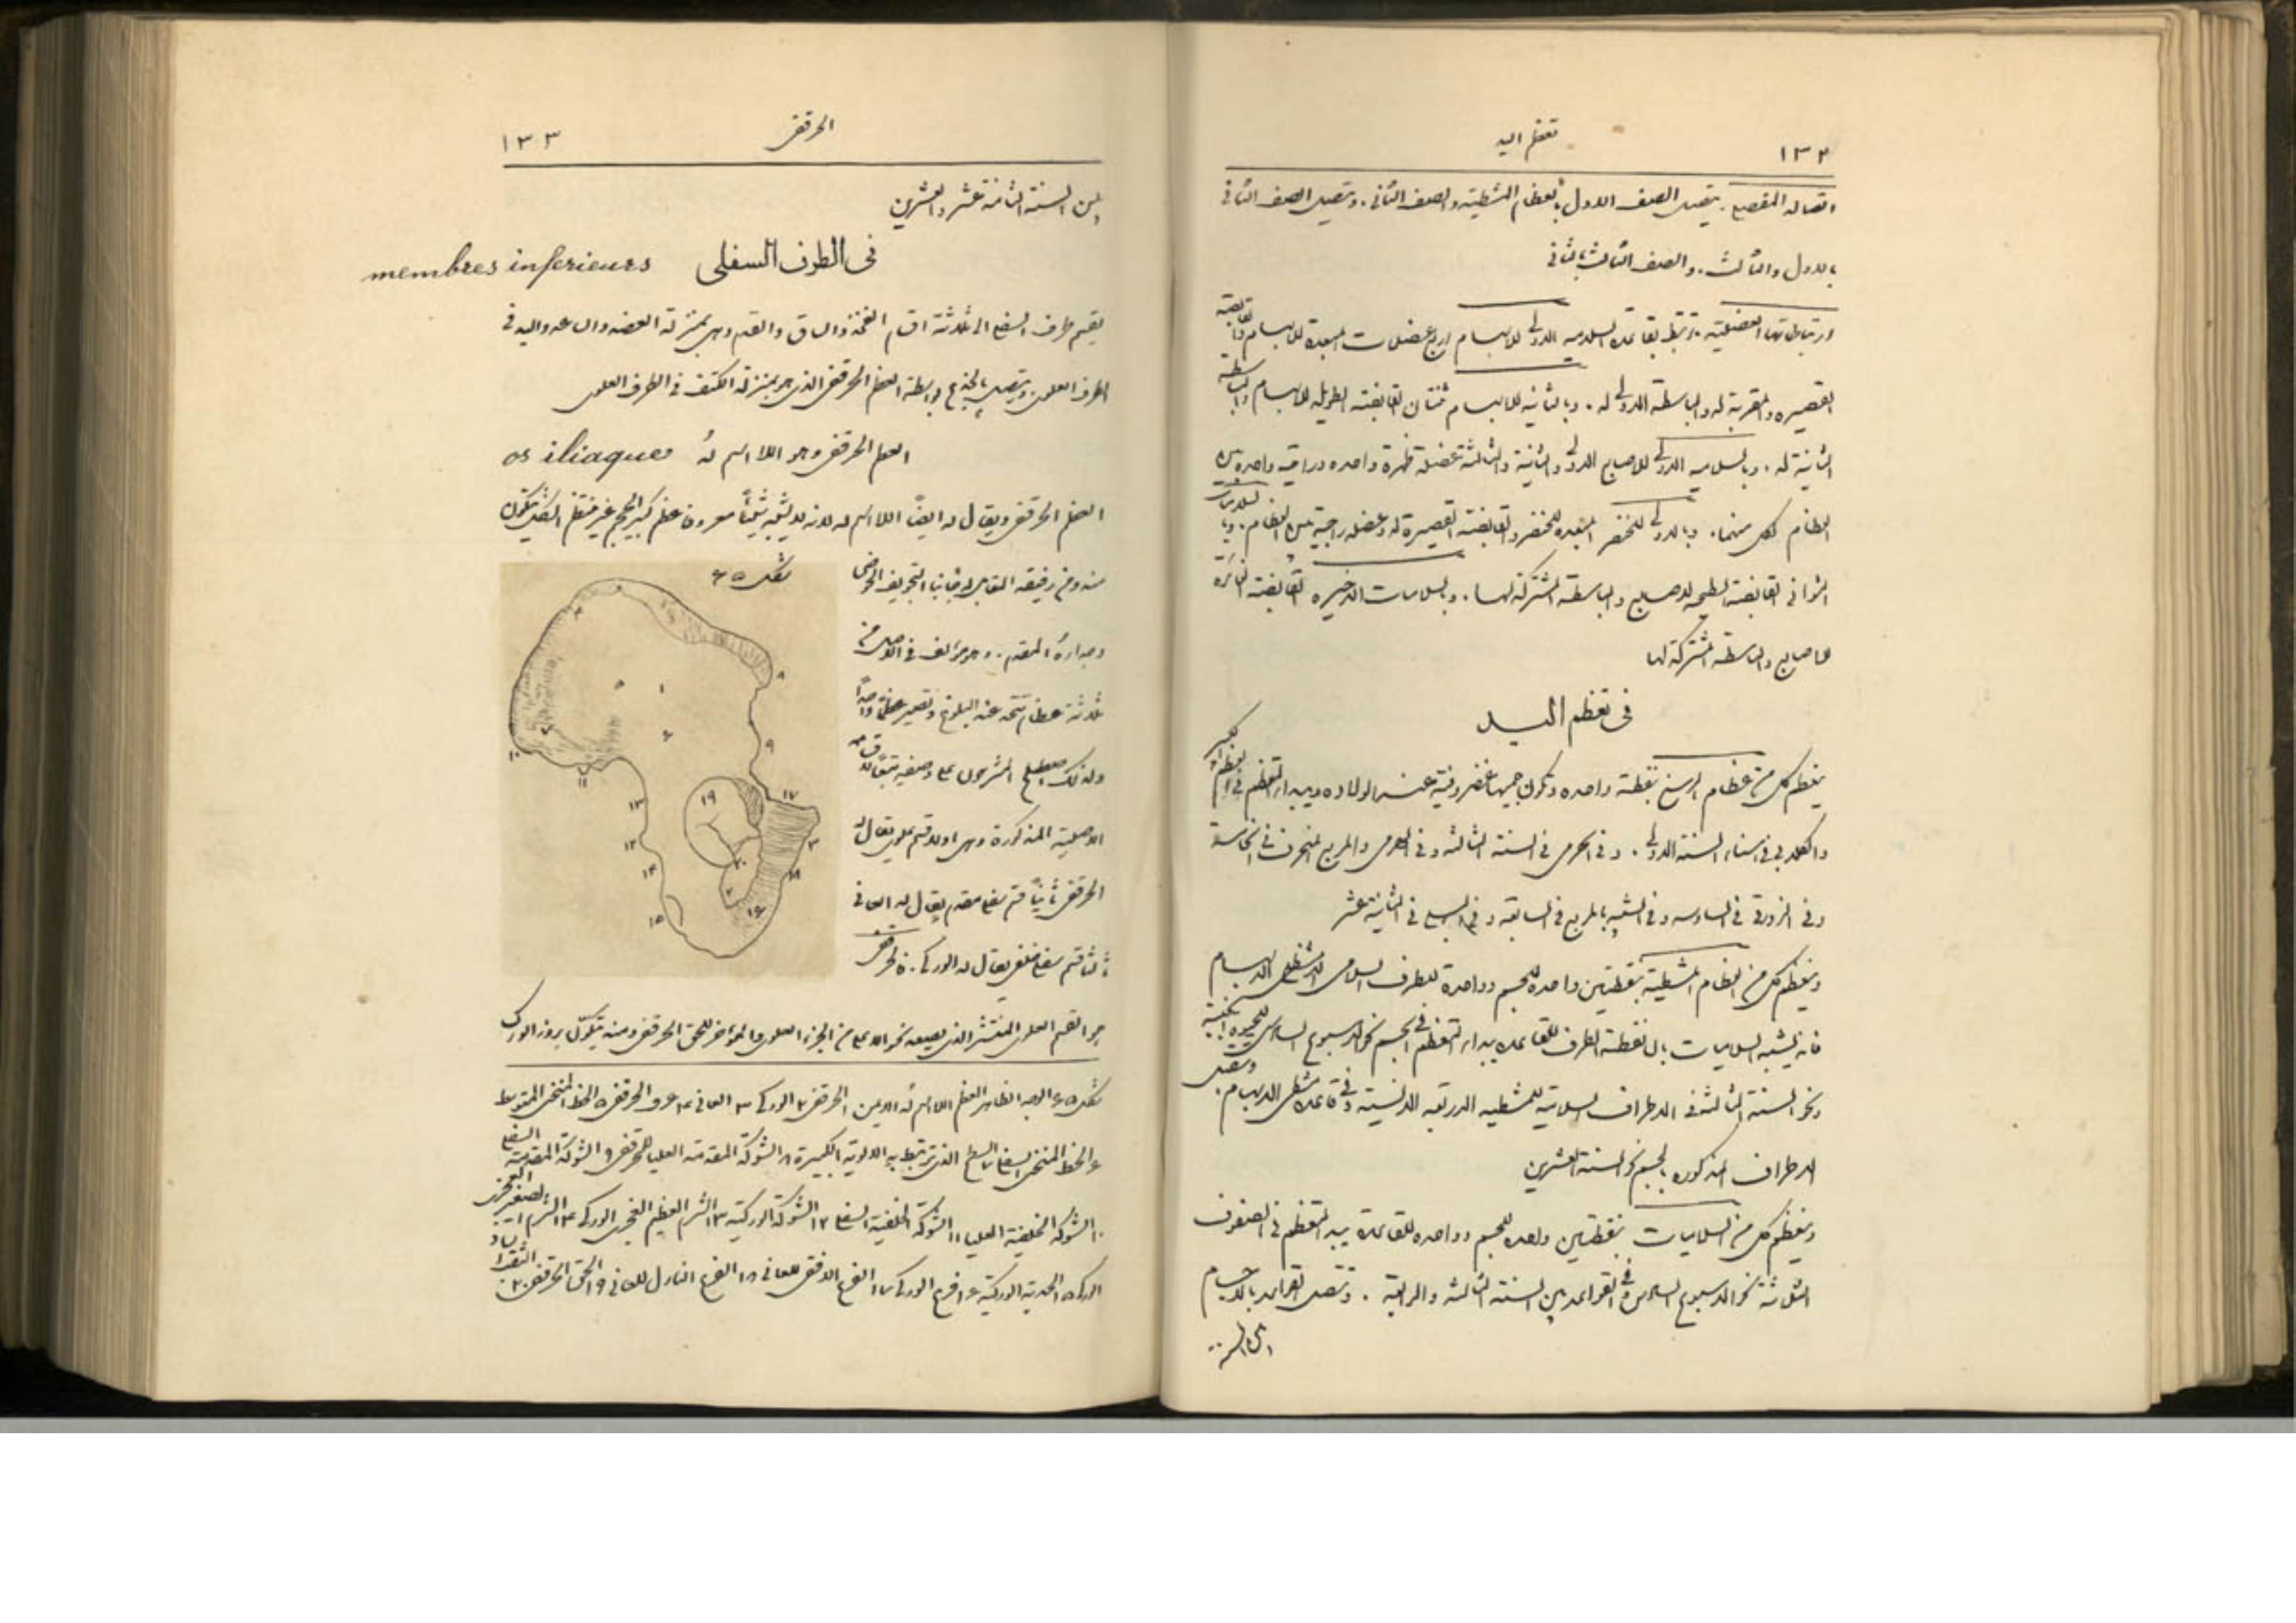 ١٣٢
تعظم اليد
اتصاله المفصلي. يتصل الصف الاول بالعظام المشطية والصف الثاني. ويتصل الصف الثاني
بالاول والثالث. والصف الثالث بالثاني
ارتباطاتها العضلية. ترتبط بقاعدة السلامية الاولى للابهام اربع عضلات المبعدة للابهام والقابضة
القصيرة والمقربة له والباسطة الاولى له. وبالثانية للابهام ثنتان القابضة الطويلة للابهام والباسطة
الثانية له. وبالسلامية الاولى للاصابع الاولى والثانية والثالثة عضلة ظهرة واحده وراقيه واحده بين
العظام لكل منهما. وبالاولى للخنصر المبعده للخنصر والقابضة القصيرة له وعضله راحية بين العظام. وبالسلاميات
الثواني القابضة السطحيه للاصابع والباسطة المشتركة لها. وبالسلاميات الاخيره القابضة الغائرة
للاصابع والباسطه المشتركة لها
فى تعظم اليد
يتعظم كل من عظام الرسغ بنقطة واحده وتكون جميعها غضروفية عند الولاده ويبدا التعظم في العظم الكبير
والكلابي في اثناء السنة الاولى. وفي الهرمى في السنة الثالثه وفي الهلالي والمربع المنحرف في الخامسة
وفى الزورقي في السادسه وفي الشبيه بالمربع في السابعة وفي البسلى في الثانية عشر
ويتعظم كل من العظام المشطية بنقطتين واحده للجسم وواحدة للطرف السلامى الا مشطى الابهام
فانه يشبه السلاميات بان نقطة الطرف للقاعدة يبدا التعظم في الجسم نحو الاسبوع السادس للحيوة الجنينية
ونحو السنة الثالثة في الاطراف السلامية للمشطيه الاربعه الانسية وفي قاعدة مشطى الابهام. وتتصل
الاطراف المذكوره بالجسم نحو السنة العشرين
ويتعظم كل من السلاميات بنقطتين واحده للجسم وواحده للقاعدة يبدا التعظم في الصفوف
الثلاثة نحو الاسبوع السادس وفي القواعد بين السنة الثالثه والرابعة. وتتصل القواعد بالاجسام
بين السنة
١٣٣
الحرقفى
بين السنة الثامنة عشر والعشرين
فى الطرف السفلى membres inferieurs
يقسم طرف السفلى الى ثلاثة اقسام الفخذ والساق والقدم وهي بمنزلة العضد والساعد واليد في
الطرف العلوي ويتصل بالجذع بواسطة العظم الحرقفى الذى هو بمنزلة الكتف في الطرف العلوى
العظم الحرقفى وهو اللا اسم له os iliaque
العظم الحرقفى ويقال له ايضاً اللا اسم له لانه لا يشبه شيئاً معروفا عظم كبير الحجم غير منتظم الشكل يتكون
منه ومن رفيقه المقابل له جانبا التجويف الحوضى
شكل ٤٥
وجداره المقدم. وهو مؤلف في الاصل من
ثلاثة عظام تتحد عند البلوغ وتصير عظماً واحداً
ولذلك اصطلح المشرحون على وصفه تبعاً لاقسامه
الاصلية المذكورة وهي اولا قسم علوي يقال له
الحرقفى ثانياً قسم سفلى مقدم يقال له العاني
ثالثا قسم سفلى خلفى يقال له الوركي. فالحرقفى
هو القسم العلوى المنتشر الذى يصعد نحو الاعلى من الجزء العلوي والمؤخر للحق الحرقفى ومنه يتكوّن بروز الورك
شكل ٤٥ الوجه الظاهر للعظم اللااسم له الايمن ١ الحرقفى ٢ الوركى ٣ العانى ٤ عرف الحرقفى ٥ الخط المنحنى المتوسط
٦ الخط المنحنى السفلى ٧ السطح الذى ترتبط به الالوية الكبيرة ٨ الشوكة المقدمة العليا للحرقفى ٩ الشوكة المقدمة السفلى
١٠ الشوكه الخلفية العليا ١١ الشوكة الخلفية السفلى ١٢ الشوكة الوركية ١٣ الشرم العظيم العجزى الوركى ١٤ الشرم الصغير العجزى
الوركى ١٥ الحدبة الوركية ١٦ فرع الوركى ١٧ الفرع الافقى للعانى ١٨ الفرع النازل للعانى ١٩ الحق الحرقفى ٢٠
١
٢
٣
٤
٥
٦
٧
٨
٩
١٠
١١
١٢
١٣
١٤
١٥
١٦
١٧
١٨
١٩
٢٠